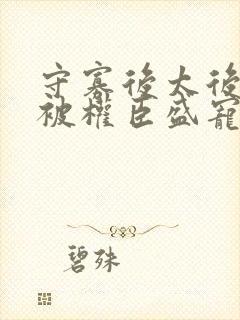 守寡後太後
被權臣盛寵
碧殊